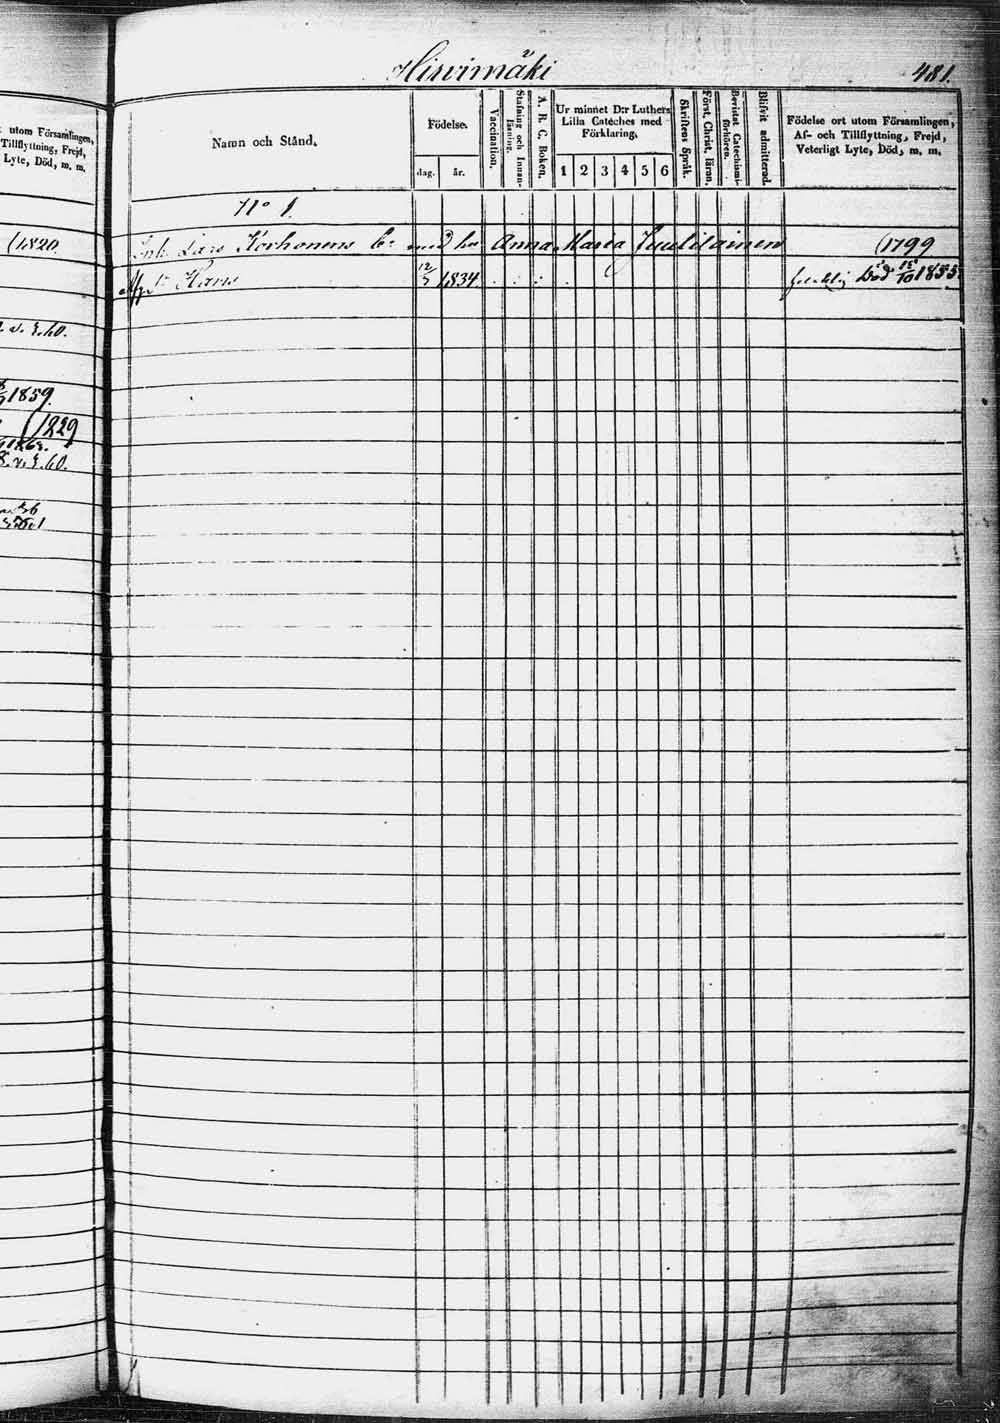 Hirvimäki
481.
utom Församlingen,
Tillflyttning, Frejd,
Lyte, Död, m. m.
Namn och Stånd.
Födelse.
dag. år.
Vaccination.
Stafning och Innan-
läsning.
A. B. C. Boken.
Ur minnet D:r Luthers
Lilla Cateches med
Förklaring.
1 2 3 4 5 6
Skriftens Språk.
Först. Christ. läran.
Bevistat Catechismi-
förhören.
Blifvit admitterad.
Födelse ort utom Församlingen,
Af- och Tillflyttning, Frejd,
Veterligt Lyte, Död, m. m.
No 1.
Lars Korhonens med Anna Maria Juutilainen (1799
Hans 12/3 1834. Död 15/10 1855.
(1820.
1859.
(1829